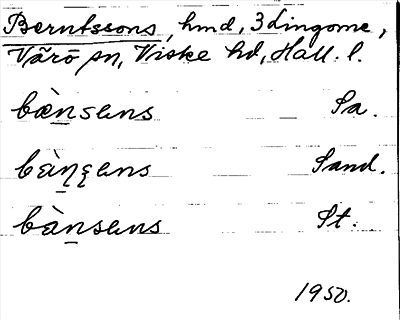 Berntssons, hmd, 3 Lingome,
Värö sn, Viske hd, Hall. l.
bæ̀n̲sɯns Sa.
bàn̲ʂɯns Sand.
bàn̲sɯns St.
1950.